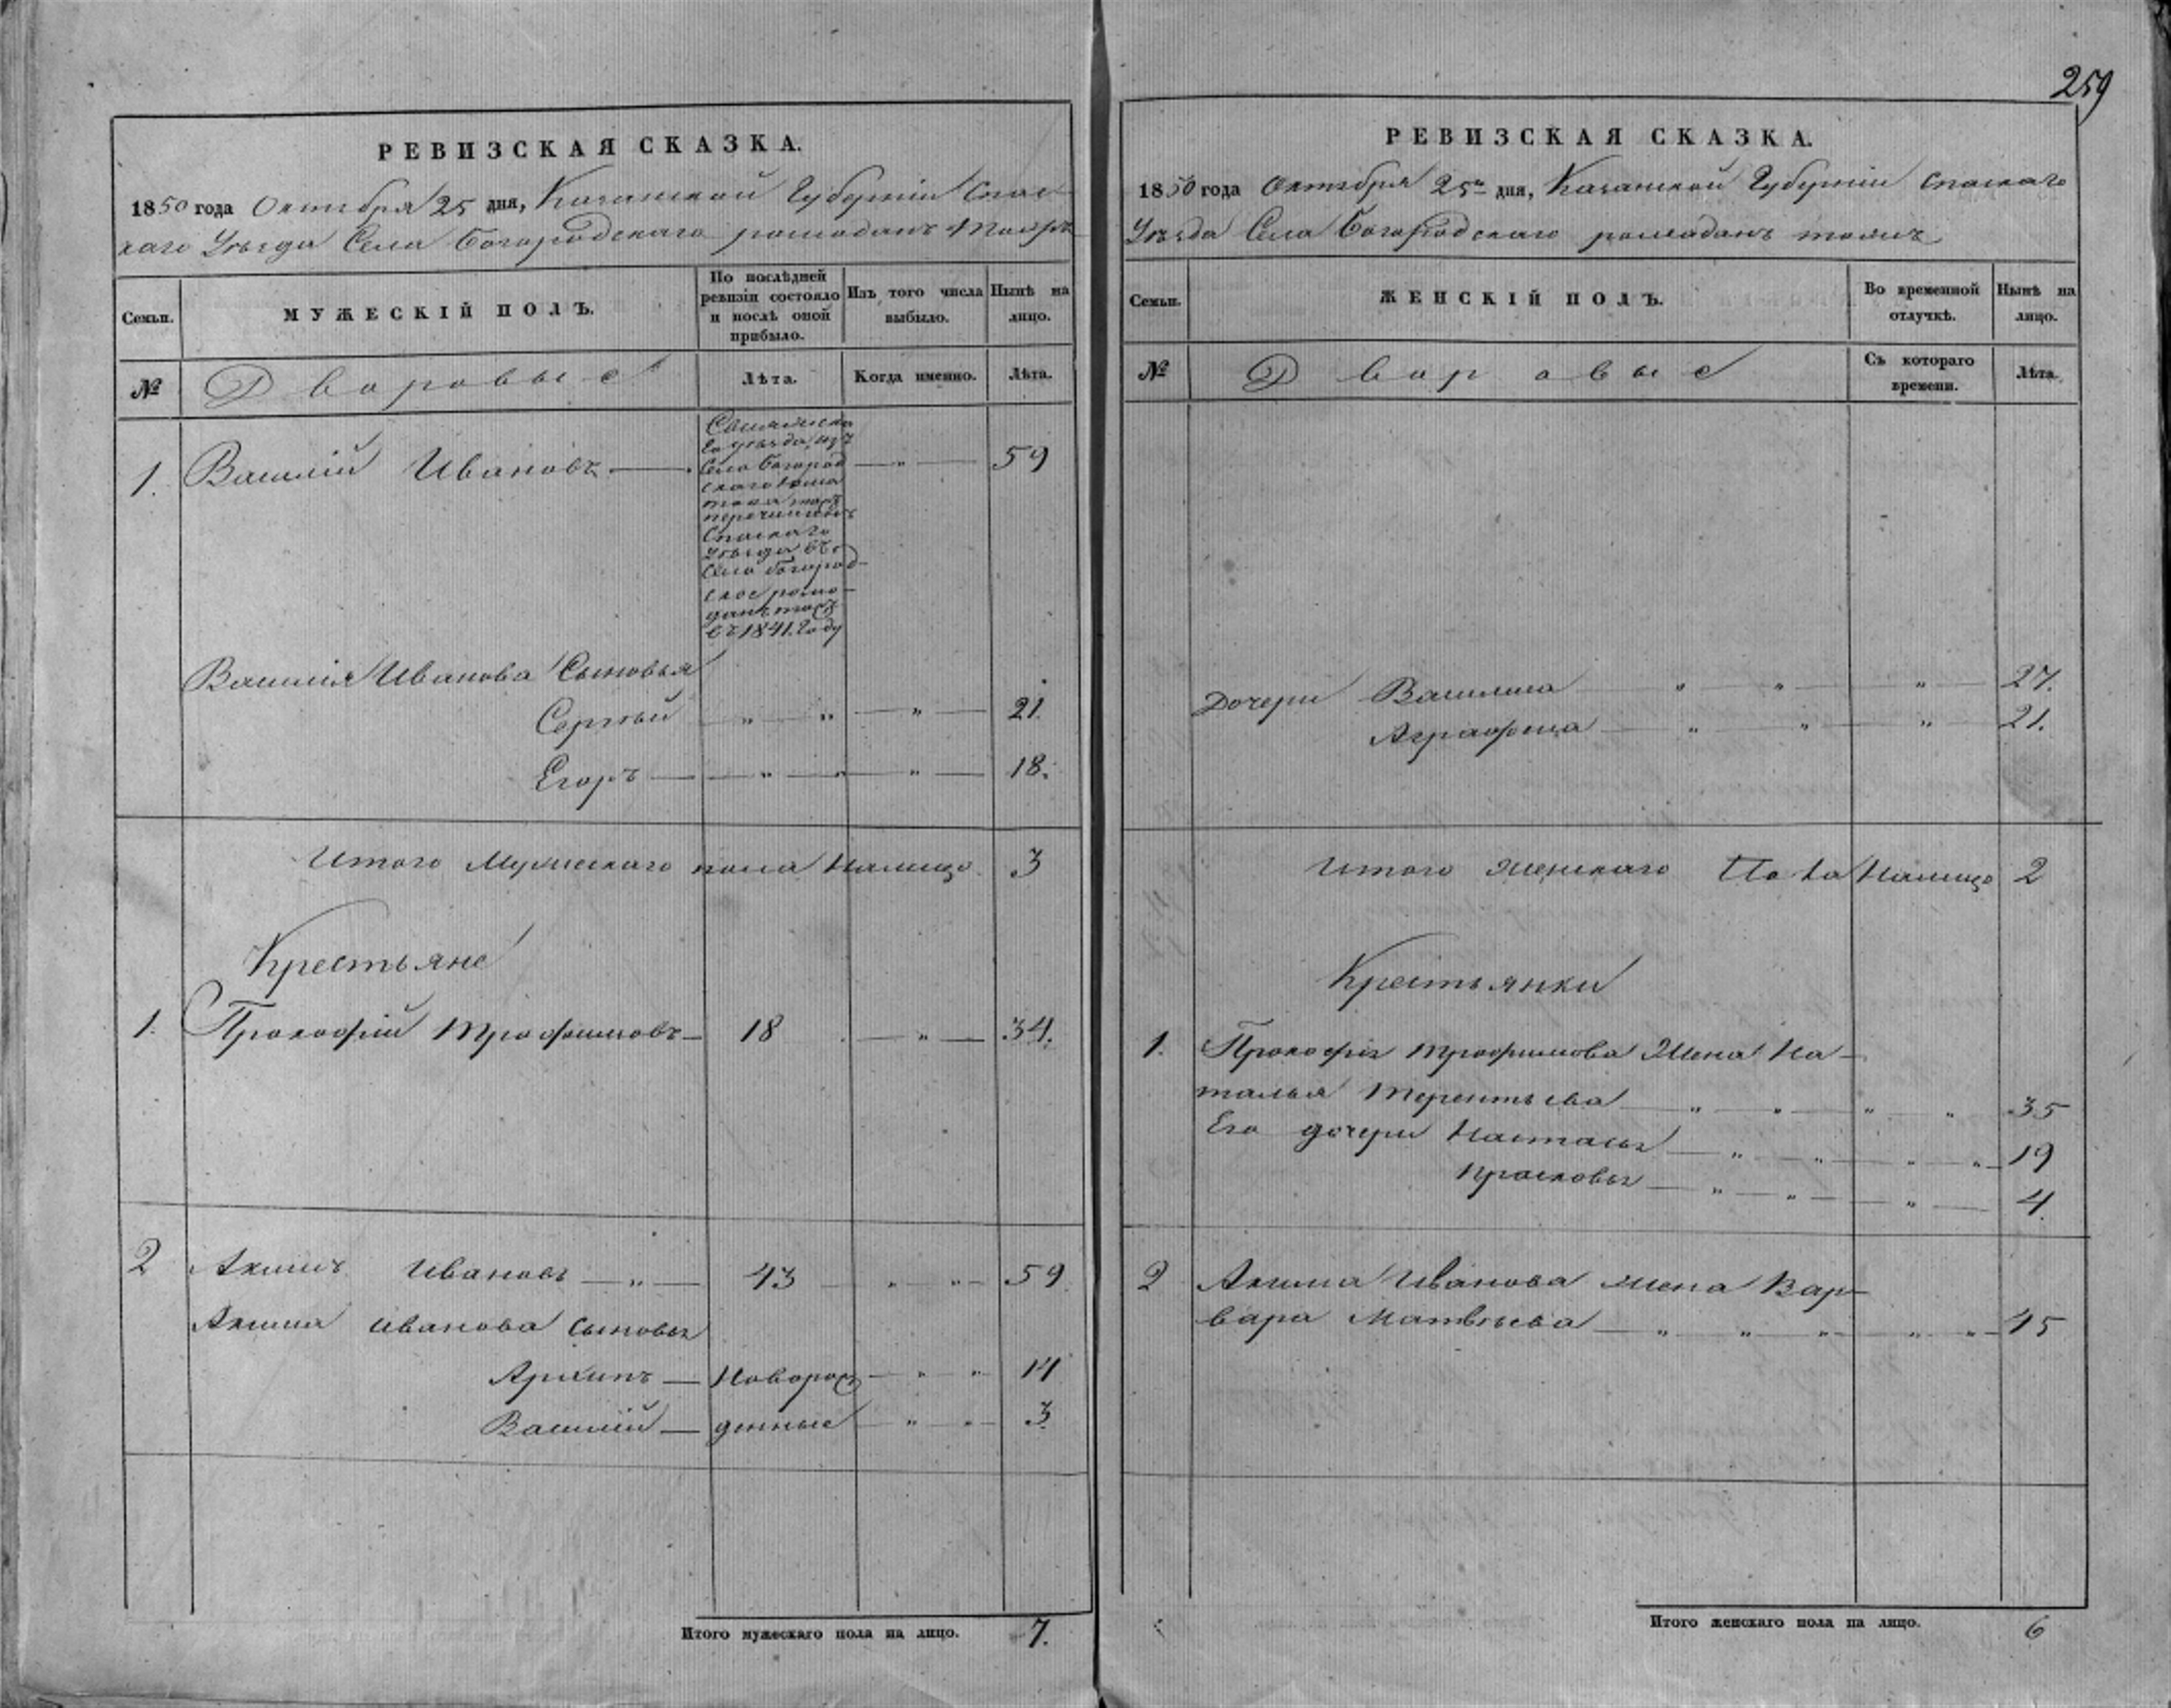 259
РЕВИЗСКАЯ СКАЗКА.
1850 года Октября 25 дня, Казанской Губерніи Спас
каго Уѣзда Села Богородскаго ромоданъ тожъ
Семьи.
МУЖЕСКІЙ ПОЛЪ.
По послѣдней ревизіи состояло и послѣ оной прибыло.
Изъ того числа выбыло.
Нынѣ на лицо.
№
Дворовые
Лѣта.
Когда именно.
Лѣта.
1. Василій Ивановъ — " — 59
го уѣзда, изъ
Села Богород
скаго
тожъ
перечисленъ
Спаскаго
Уѣзда въ
Село Богород-
ское ромо-
данъ тожъ
въ 1841. Году
Василія Иванова Сыновья
Сергѣй — " — " — " — 21.
Егоръ — " — " — " — 18.
Итого Мужескаго пола На лицо 3
Крестьяне
1. Прокофій Трофимовъ — 18 — " — 34.
2 Акимъ Ивановъ — " — 43 — " — " — 59
Акима Иванова Сыновья
Архипъ — Новорож — " — " — 14
Василій — денные — " — " — 3
Итого мужескаго пола на лицо. 7.
РЕВИЗСКАЯ СКАЗКА.
1850 года Октября 25го дня, Казанской Губерніи Спаскаго
Уѣзда Села Богородскаго ромаданъ тожъ
Семьи.
ЖЕНСКІЙ ПОЛЪ.
Во временной отлучкѣ.
Нынѣ на лицо.
№
Дворовые
Съ котораго времени.
Лѣта.
Дочери Василиса — " — " — " — 27.
Аграфена — " — " — " — 21.
Итого женскаго Пола На лицо 2
Крестьянки
1. Прокофія Трофимова Жена На-
талья Терентьева — " — " — " — " 35
Его дочери Настасья — " — " — " — " — 19
Прасковья — " — " — " — 4.
2 Акима Иванова жена Вар-
вара Матвѣева — " — " — " — " — " — 45
Итого женскаго пола на лицо. 6